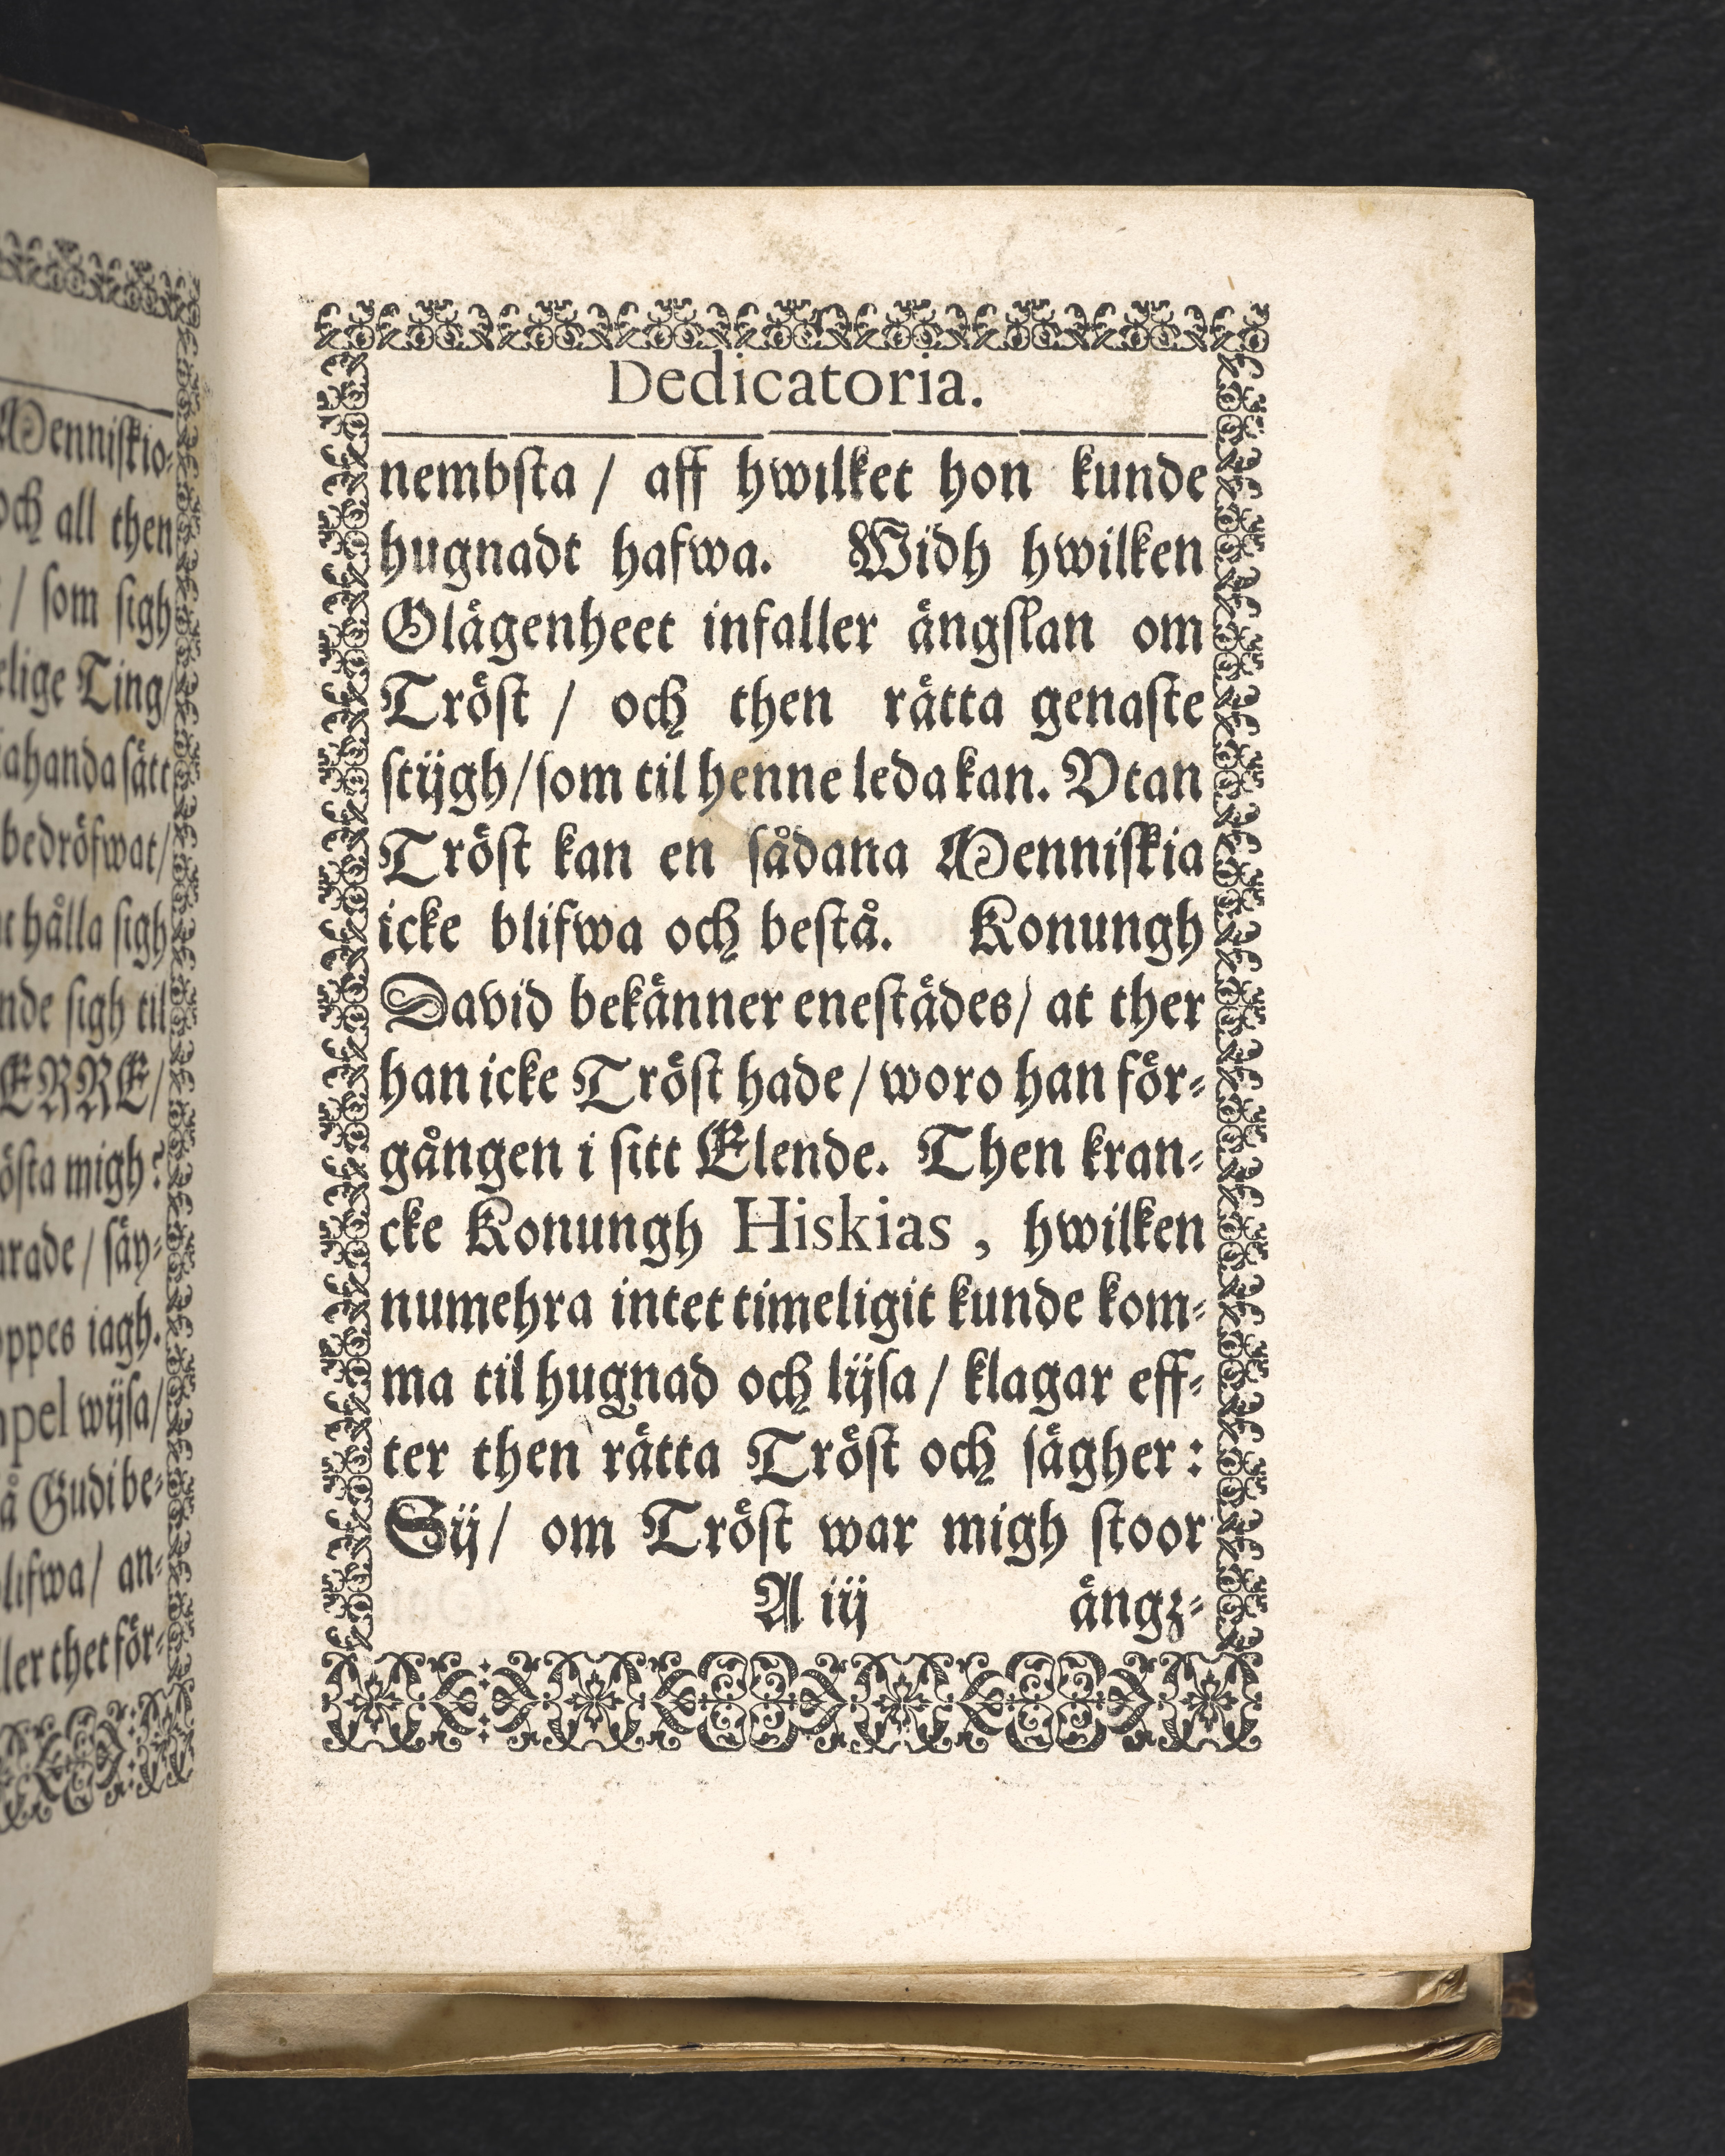 Menniskio-
och all then
/ som sigh
elige Ting/
ahanda sätt
bedröfwat/
hålla sigh
nde sigh til
ERRE/
östa migh?
arade / säy-
oppes iagh.
mpel wijsa/
å Gudi be-
blifwa / an-
ller thet för-
Dedicatoria.
nembsta / aff hwilket hon kunde
hugnadt hafwa. Widh hwilken
Olägenheet infaller ängslan om
Tröst / och then rätta genaste
stijgh/som til henne leda kan. Vtan
Tröst kan en sådana Menniskia
icke blifwa och bestå. Konungh
David bekänner enestädes/ at ther
han icke Tröst hade / woro han för-
gången i sitt Elende. Then kran-
cke Konungh Hiskias , hwilken
numehra intet timeligit kunde kom-
ma til hugnad och lijsa / klagar eff-
ter then rätta Tröst och sägher:
Sij/ om Tröst war migh stoor
A iij ängz-